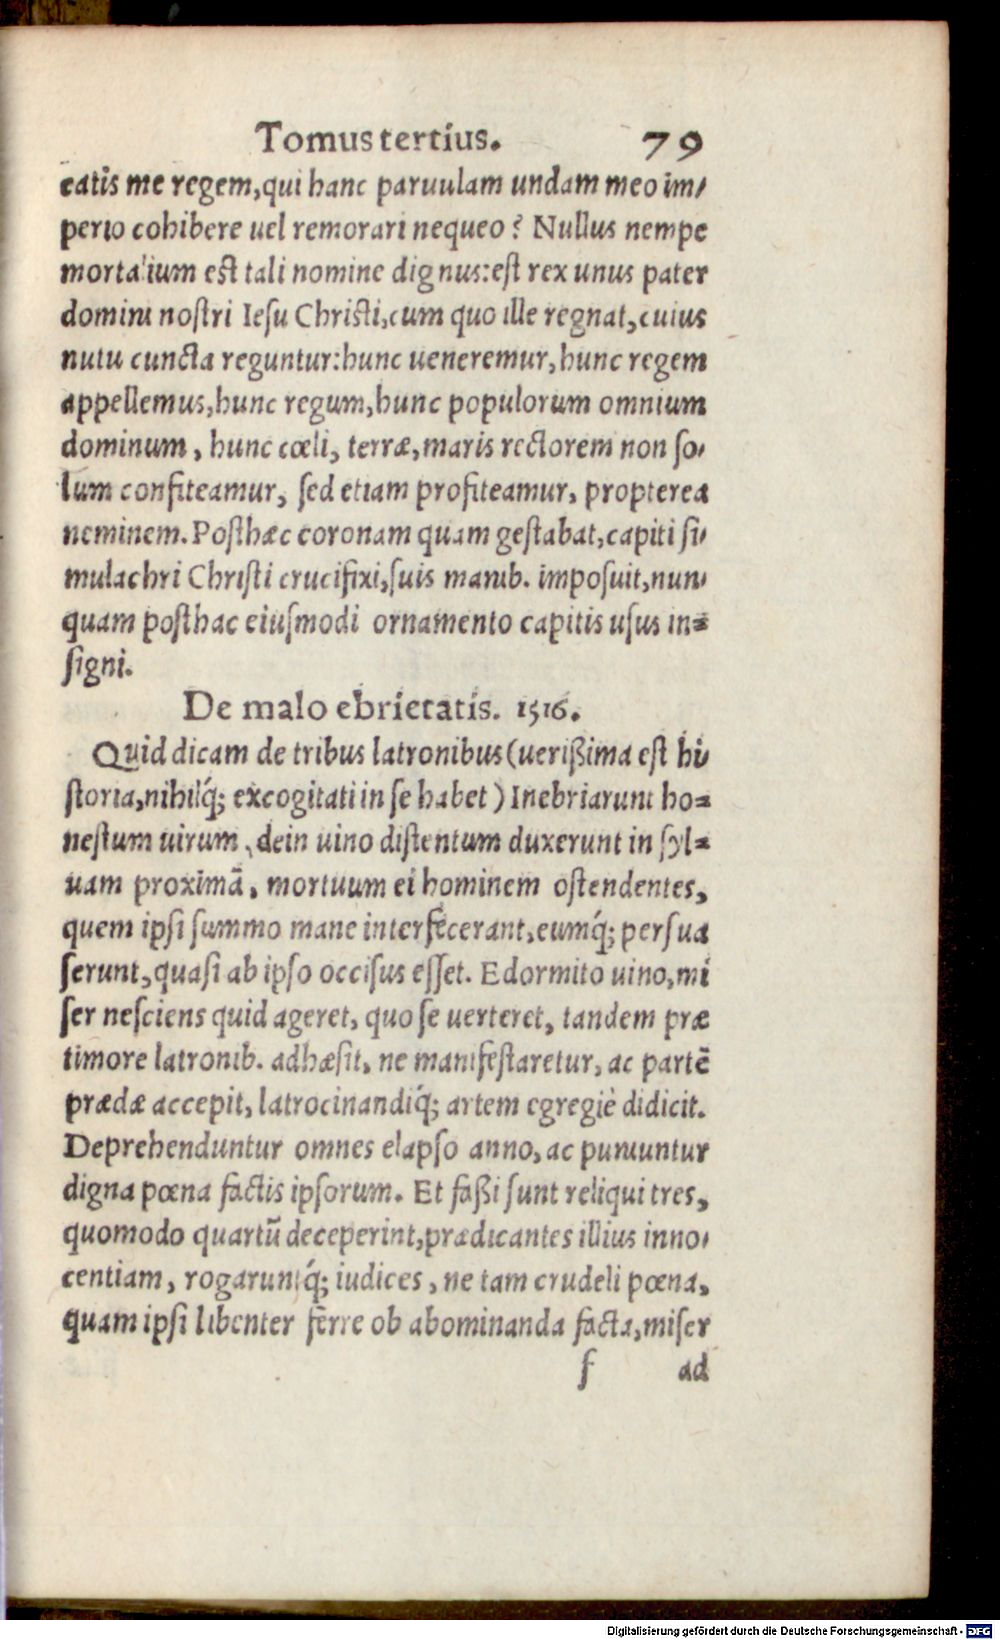 Tomus tertius. 79
catis me regem, qui hanc paruulam undam meo im-
perio cohibere uel remorari nequeo? Nullus nempe
mortalium est tali nomine dignus: est rex unus pater
domini nostri Iesu Christi, cum quo ille regnat, cuius
nutu cuncta reguntur: hunc ueneremur, hunc regem
appellemus, hunc regum, hunc populorum omnium
dominum, hunc cœli, terræ, maris rectorem non so-
lum confiteamur, sed etiam profiteamur, propterea
neminem. Posthæc coronam quam gestabat, capiti si-
mulachri Christi crucifixi, suis manib. imposuit, nun-
quam posthac eiusmodi ornamento capitis usus in-
signi.
De malo ebrietatis. 1516.
Quid dicam de tribus latronibus (uerißima est hi-
storia, nihilq́; excogitati in se habet) Inebriarunt ho-
nestum uirum, dein uino distentum duxerunt in syl-
uam proximã, mortuum ei hominem ostendentes,
quem ipsi summo mane interfecerant, eumq́; persua
serunt, quasi ab ipso occisus esset. Edormito uino, mi
ser nesciens quid ageret, quo se uerteret, tandem præ
timore latronib. adhæsit, ne manifestaretur, ac partẽ
prædæ accepit, latrocinandiq́; artem egregiè didicit.
Deprehenduntur omnes elapso anno, ac puniuntur
digna pœna factis ipsorum. Et faßi sunt reliqui tres,
quomodo quartũ deceperint, prædicantes illius inno-
centiam, rogaruntq́; iudices, ne tam crudeli pœna,
quam ipsi libenter ferre ob abominanda facta, miser
f ad
Digitalisierung gefördert durch die Deutsche Forschungsgemeinschaft - DFG